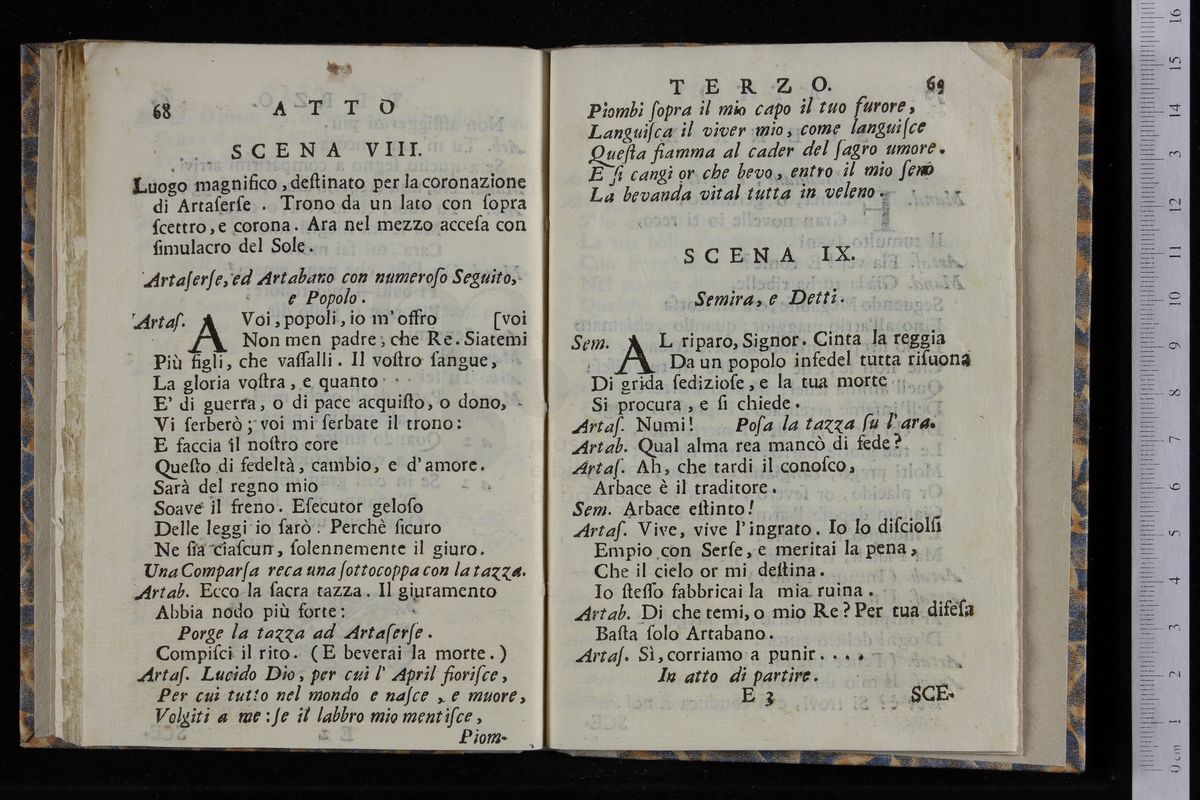 68 ATTO
SCENA VIII.
Luogo magnifico, deſtinato per la coronazione
di Artaſerſe. Trono da un lato con ſopra
ſcettro, e corona. Ara nel mezzo acceſa con
ſimulacro del Sole.
Artaſerſe, ed Artabano con numeroſo Seguito,
e Popolo.
Artaſ. A Voi, popoli, io m'offro [voi
Non men padre, che Re. Siatemi
Più figli, che vaſſalli. Il voſtro ſangue,
La gloria voſtra, e quanto
E' di guerra, o di pace acquiſto, o dono,
Vi ſerberò; voi mi ſerbate il trono:
E faccia il noſtro core
Queſto di fedeltà, cambio, e d'amore.
Sarà del regno mio
Soave il freno. Eſecutor geloſo
Delle leggi io ſarò. Perchè ſicuro
Ne ſia ciaſcun, ſolennemente il giuro.
Una Comparſa reca una ſottocoppa con la tazza.
Artab. Ecco la ſacra tazza. Il giuramento
Abbia nodo più forte:
Porge la tazza ad Artaſerſe.
Compiſci il rito. (E beverai la morte.)
Artaſ. Lucido Dio, per cui l' April fioriſce,
Per cui tutto nel mondo e naſce, e muore,
Volgiti a me: ſe il labbro mio mentiſce,
Piom-
TERZO. 69
Piombi ſopra il mio capo il tuo furore,
Languiſca il viver mio, come languiſce
Queſta fiamma al cader del ſagro umore.
E ſi cangi or che bevo, entro il mio ſeno
La bevanda vital tutta in veleno.
SCENA IX.
Semira, e Detti.
Sem. AL riparo, Signor. Cinta la reggia
Da un popolo infedel tutta riſuona
Di grida ſedizioſe, e la tua morte
Si procura, e ſi chiede.
Artaſ. Numi! Poſa la tazza ſu l'ara.
Artab. Qual alma rea mancò di fede?
Artaſ. Ah, che tardi il conoſco,
Arbace è il traditore.
Sem. Arbace eſtinto!
Artaſ. Vive, vive l'ingrato. Io lo diſciolſi
Empio con Serſe, e meritai la pena,
Che il cielo or mi deſtina.
Io ſteſſo fabbricai la mia ruina.
Artab. Di che temi, o mio Re? Per tua difeſa
Baſta ſolo Artabano.
Artaſ. Sì, corriamo a punir....
In atto di partire.
E 3 SCE-
0 cm 1 2 3 4 5 6 7 8 9 10 11 12 13 14 15 16